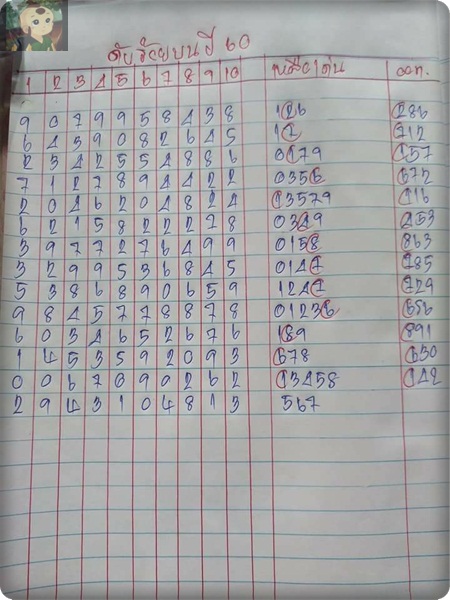 ดับร้อยบนปี 60
1 2 3 4 5 6 7 8 9 10 เหลือ/เด่น ออก.
9 0 7 9 9 5 8 4 3 8 126 286
6 4 3 9 0 8 2 6 4 5 17 712
2 3 4 2 5 5 4 8 8 6 0179 157
7 1 2 7 8 9 4 4 2 2 0356 672
2 0 4 6 2 0 4 8 2 4 13579 116
6 2 1 5 8 2 2 2 7 8 0349 453
3 9 7 7 2 7 6 4 9 9 0158 863
3 2 9 9 5 3 6 8 4 5 0147 785
5 3 8 6 8 9 0 6 5 9 1247 729
9 8 4 5 7 7 8 8 7 8 01236 656
6 0 3 4 6 5 2 6 7 6 189 891
1 4 5 3 5 9 2 0 9 3 678 630
0 0 6 7 0 9 0 2 6 2 13458 142
2 9 4 3 1 0 4 8 1 3 567